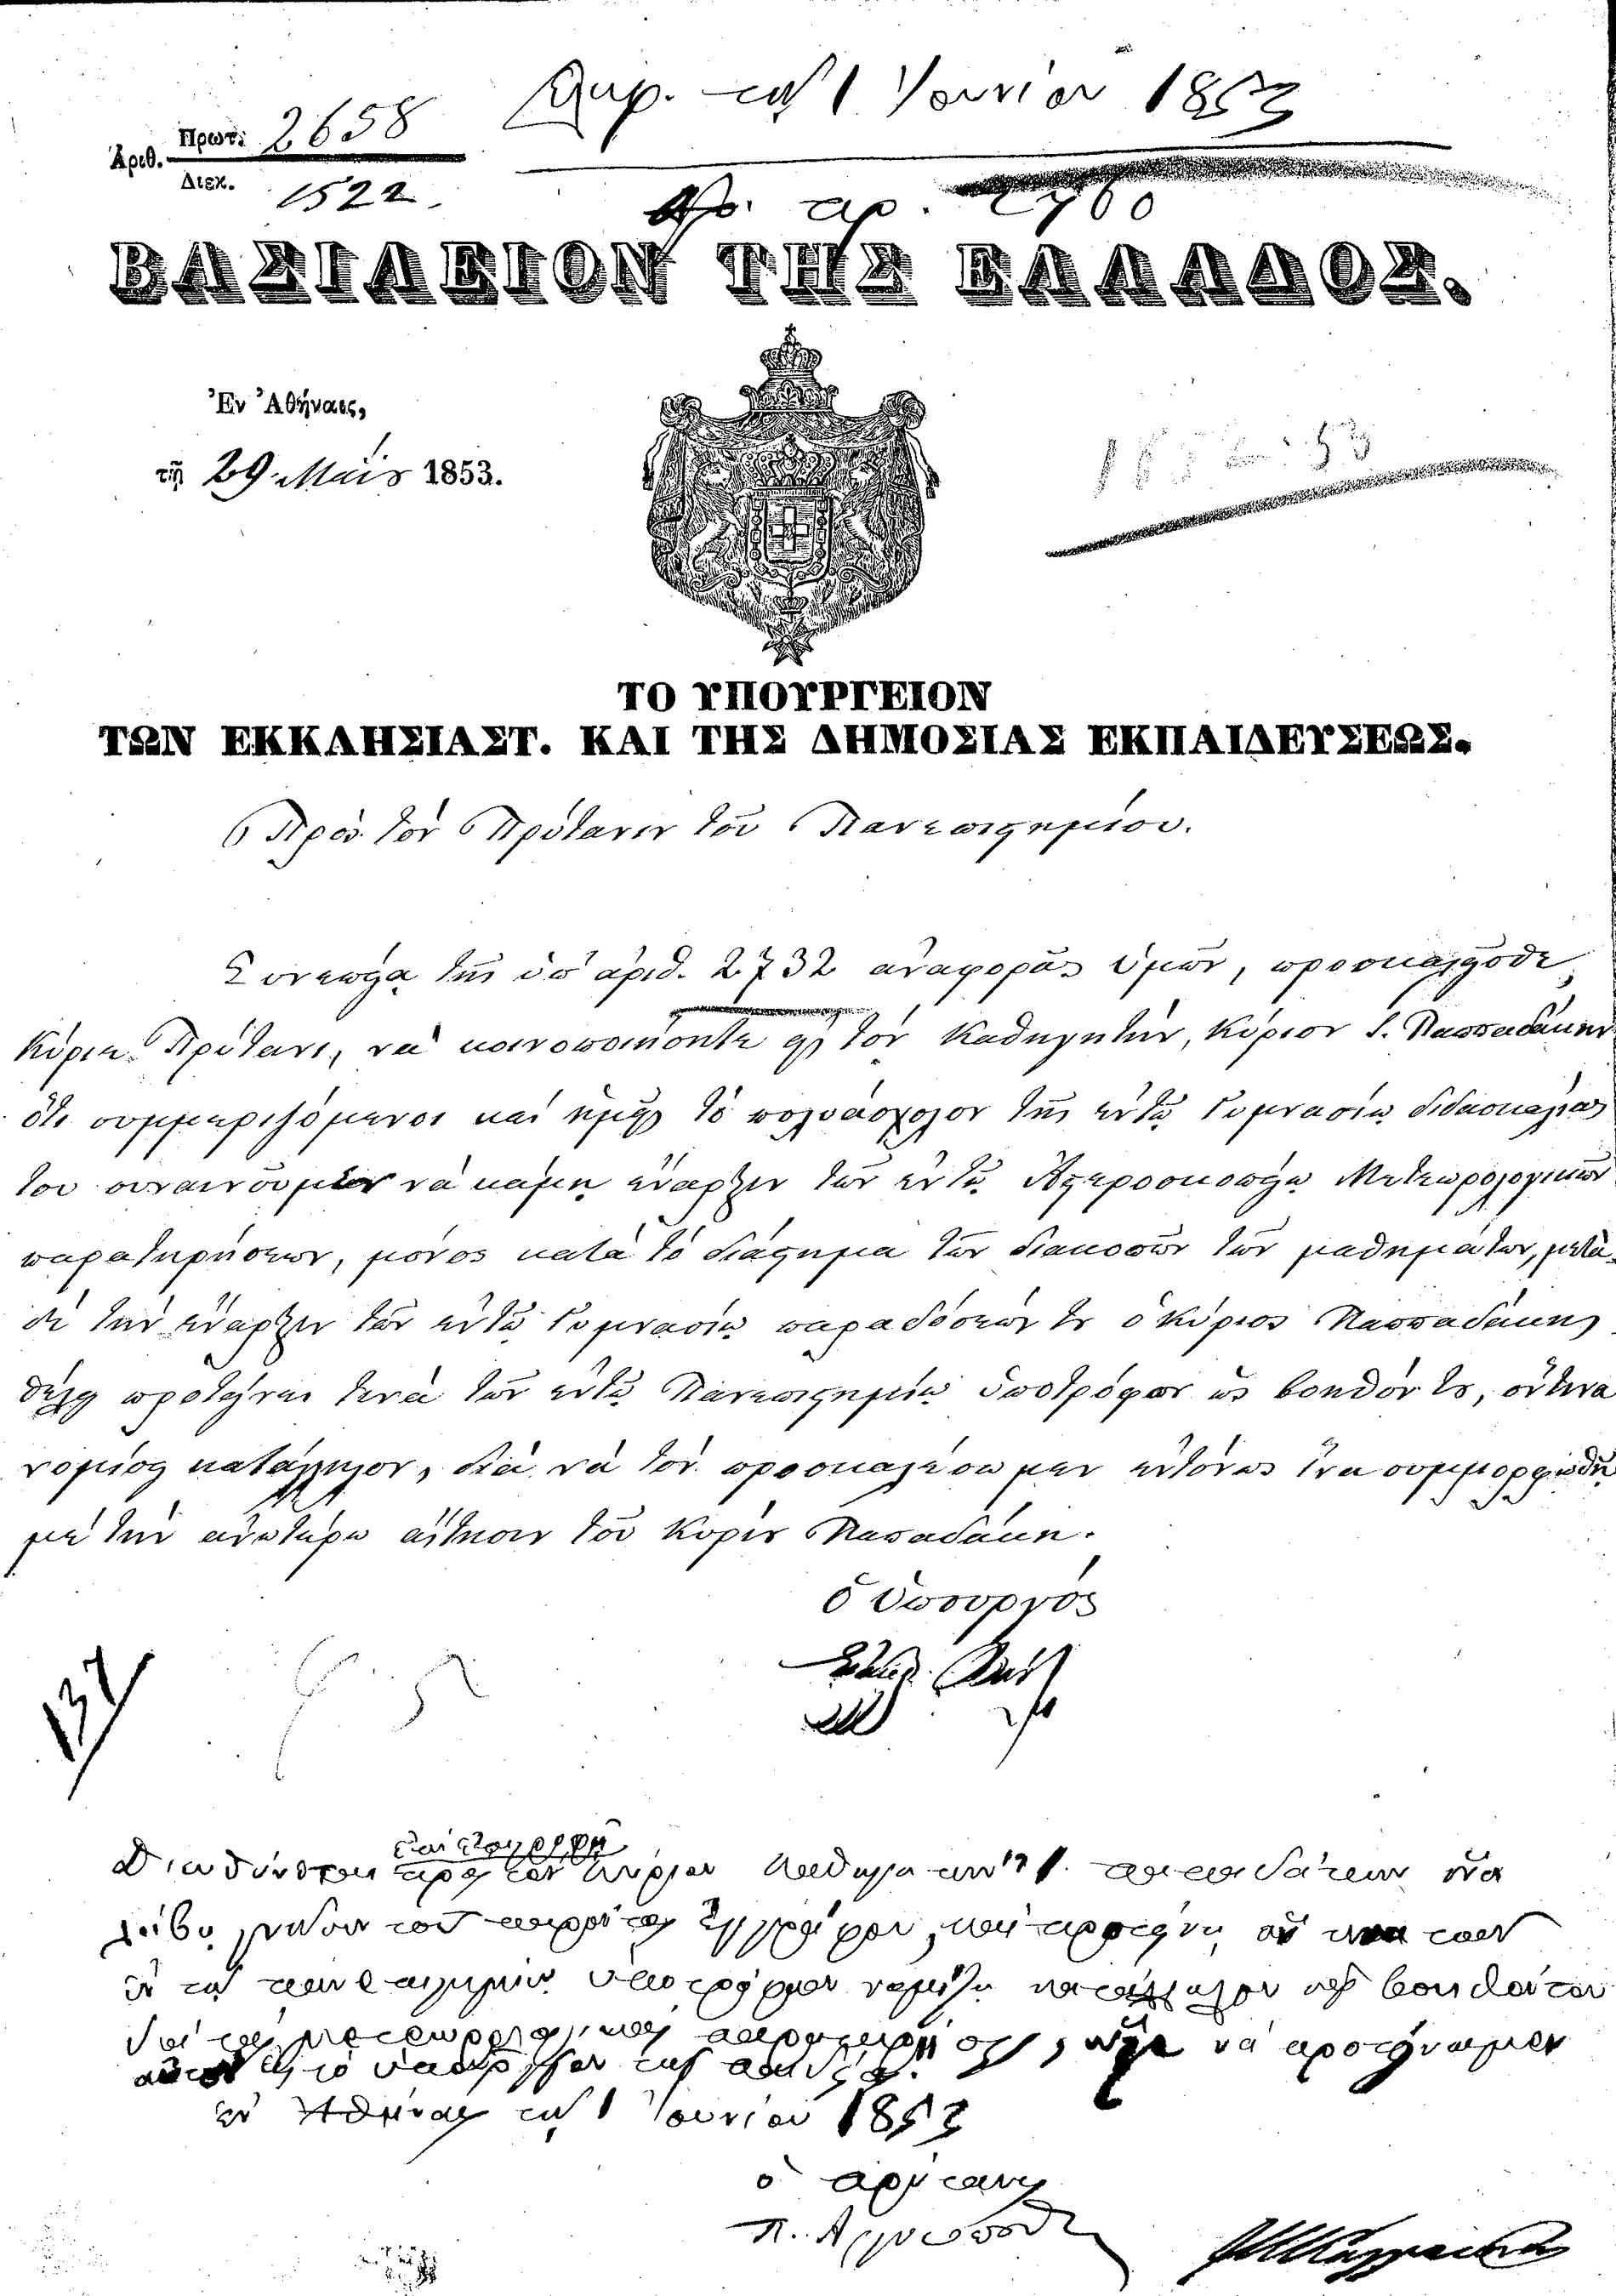 Παρ. τῇ 1 Ἰουνίου 1853
Πρωτ: 2658
Ἀριθ.
Διεκ. 1522.
Πρ. αρ. 2760
ΒΑΣΙΛΕΙΟΝ ΤΗΣ ΕΛΛΑΔΟΣ.
Ἐν Ἀθήναις,
τῇ 29 Μαΐου 1853.
1852-53
ΤΟ ΥΠΟΥΡΓΕΙΟΝ
ΤΩΝ ΕΚΚΛΗΣΙΑΣΤ. ΚΑΙ ΤΗΣ ΔΗΜΟΣΙΑΣ ΕΚΠΑΙΔΕΥΣΕΩΣ.
Πρὸς τὸν Πρύτανιν τοῦ Πανεπιστημίου.
Συνεπείᾳ τῆς ὑπ' ἀριθ. 2732 ἀναφορᾶς ὑμῶν, προσκαλεῖσθε,
Κύριε Πρύτανι, νὰ κοινοποιήσητε εἰς τὸν Καθηγητὴν, Κύριον Ἰ. Παππαδάκην
ὅτι συμμεριζόμενοι καὶ ἡμεῖς τὸ πολυάσχολον τῆς ἐν τῷ Γυμνασίῳ διδασκαλίας
του συναινοῦμεν νὰ κάμῃ ἔναρξιν τῶν ἐν τῷ Ἀστεροσκοπείῳ Μετεωρολογικῶν
παρατηρήσεων, μόνος κατὰ τὸ διάστημα τῶν διακοπῶν τῶν μαθημάτων, μετὰ
δὲ τὴν ἔναρξιν τῶν ἐν τῷ Γυμνασίῳ παραδόσεών του ὁ Κύριος Παππαδάκης
θέλει προτείνει τινὰ τῶν ἐν τῷ Πανεπιστημίῳ ὑποτρόφων ὡς βοηθόν του, ὅντινα
νομίσῃ κατάλληλον, διὰ νὰ τὸν προσκαλέσωμεν ἐντόνως ἵνα συμμορφωθῇ
μὲ τὴν ἀνωτέρω αἴτησιν τοῦ Κυρίου Παπαδάκη.
ὁ Ὑπουργός
137
ἐπιστροφῇ
Διευθύνεται πρὸς τὸν Κύριον Καθηγητὴν Ἰ. Παππαδάκην ἵνα
λάβῃ γνῶσιν τοῦ παρόντος ἐγγράφου, καὶ προτείνῃ ὃν τινα τῶν
ἐν τῷ πανεπιστημίῳ ὑποτρόφων νομίσῃ κατάλληλον ὡς βοηθόν του
διὰ τὰς μετεωρολογικὰς παρατηρήσεις, νὰ προτείνωμεν
ἐν Ἀθήναις τῇ 1 Ἰουνίου 1853
ὁ πρύτανις
Π. Ἀργυρόπουλος